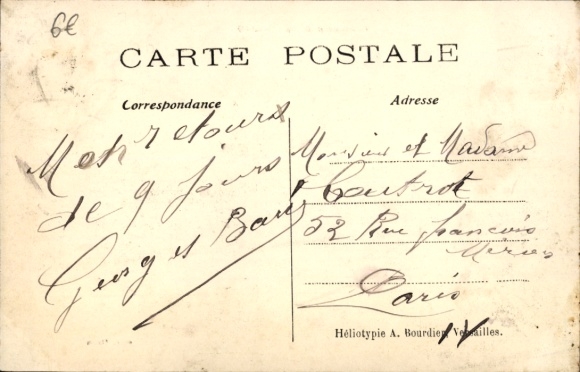 6€
CARTE POSTALE
Correspondance
Adresse
retours
de 9 jours
Georges
Monsieur et Madame
Coutrot
52 Rue francois
Paris
14
Héliotypie A. Bourdier, Versailles.